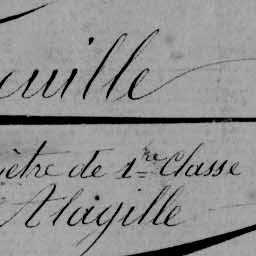 euille
iètre de 1re Classe
Alagille